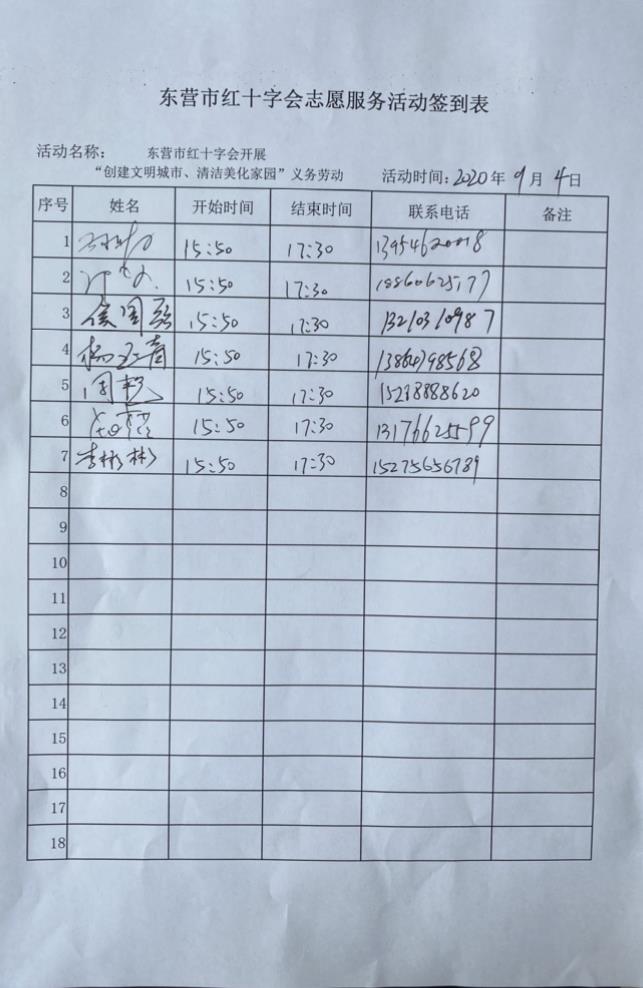 东营市红十字会志愿服务活动签到表
活动名称： 东营市红十字会开展
“创建文明城市、清洁美化家园”义务劳动 活动时间：2020年 9月 4日
序号 姓名 开始时间 结束时间 联系电话 备注
1 15:50 17:30
2 15:50 17:30 18860625177
3 15:50 17:30 13210310987
4 15:50 17:30
5 周 15:50 17:30
6 15:50 17:30 13176625599
7 李彬彬 15:50 17:30 15275656789
8
9
10
11
12
13
14
15
16
17
18